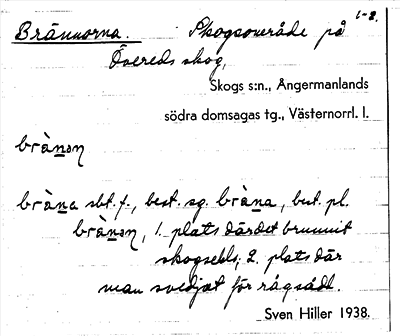 Brännorna. Skogsområde på 1-2.
Övereds skog,
Skogs s:n., Ångermanlands
södra domsagas tg., Västernorrl. l.
brạ̀nən
brạ̀na sbt. f., best. sg. brạ̀na, best. pl.
brạ̀nən, 1. plats där det brunnit
skogseld; 2. plats där
man svedjat för rågsådd.
Sven Hiller 1938.